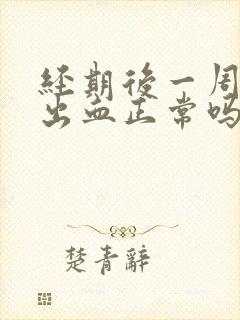 经期後一周
出血正常吗
楚青辭